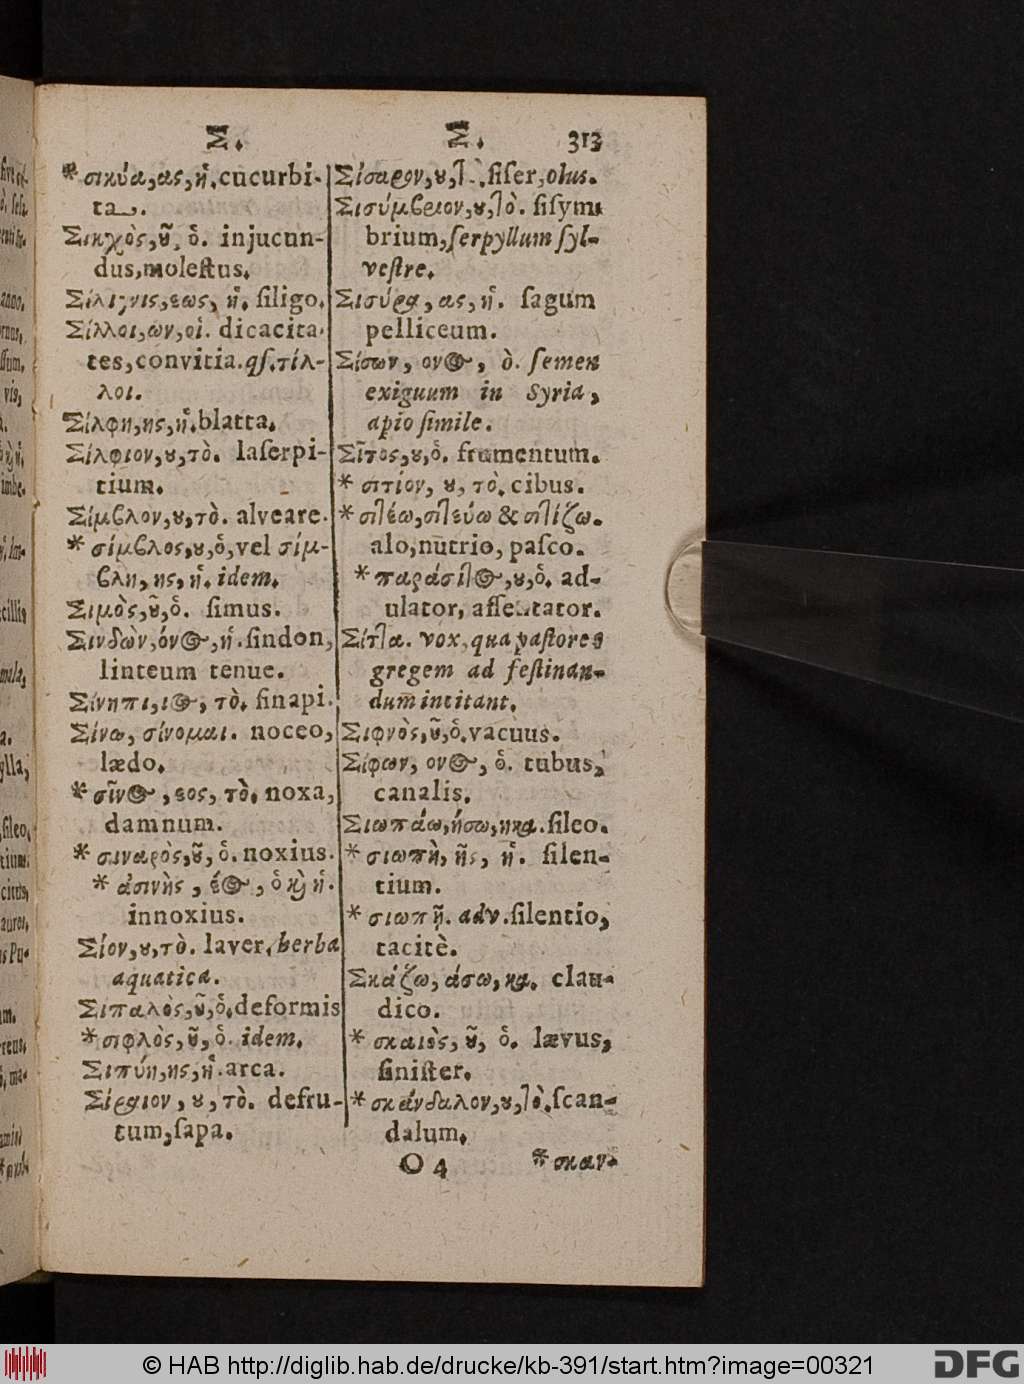 Σ.
Σ. 313
*σικύα,ας,ἡ.cucurbi-
ta.
Σικχὸς,ȣ͂, ὁ. injucun-
dus,moleſtus.
Σίλιγνις,εως, ἡ. ſiligo.
Σίλλοι,ων,οἱ. dicacita-
tes,convitia.qſ.τίλ-
λοι.
Σίλφη,ης,ἡ.blatta.
Σίλφιον,ȣ,τὸ. laſerpi-
tium.
Σίμβλον,ȣ,τὸ. alveare.
* σίμβλος,ȣ,ὁ,vel σίμ-
βλη, ης, ἡ. idem.
Σιμὸς,ȣ͂,ὁ. ſimus.
Σινδὼν,όνος,ἡ.ſindon,
linteum tenue.
Σίνηπι,ιος, τὸ. ſinapi.
Σίνω, σίνομαι. noceo,
lædo.
* σῖνος, εος, τὸ. noxa,
damnum.
* σιναρὸς,ȣ͂, ὁ. noxius.
* ἀσινὴς, έος, ὁ ϗ ἡ.
innoxius.
Σίον,ȣ,τὸ. laver,herba
aquatica.
Σιπαλὸς,ȣ͂,ὁ.deformis
*σιφλὸς,ȣ͂, ὁ. idem.
Σιπύη,ης,ἡ.arca.
Σίραιον, ȣ, τὸ. defru-
tum,ſapa.
Σίσαρον,ȣ,τὸ.ſiſer,olus.
Σισύμβριον,ȣ,τὸ. ſiſym-
brium,ſerpyllum ſyl-
veſtre.
Σισύρα, ας,ἡ. ſagum
pelliceum.
Σίσων, ονος, ὁ. ſemen
exiguum in Syria,
apio ſimile.
Σῖτος,ȣ,ὁ. frumentum.
* σιτίον, ȣ, τὸ. cibus.
* σιτέω,σιτεύω & σιτίζω.
alo,nutrio, paſco.
* παράσιτος,ȣ,ὁ. ad-
ulator, aſſentator.
Σίττα. vox, qua paſtores
gregem ad feſtinan-
dum incitant.
Σιφνὸς,ȣ͂,ὁ.vacuus.
Σίφων, ονος, ὁ. tubus,
canalis.
Σιωπάω,ήσω,ηκα.ſileo.
* σιωπὴ, ῆς, ἡ. ſilen-
tium.
* σιωπῇ. adv.ſilentio,
tacitè.
Σκάζω, άσω, κα. clau-
dico.
* σκαιὸς, ȣ͂, ὁ. lævus,
ſiniſter.
*σκάνδαλον,ȣ,τὸ.ſcan-
dalum.
O 4 *σκαν-
© HAB http://diglib.hab.de/drucke/kb-391/start.htm?image=00321
DFG